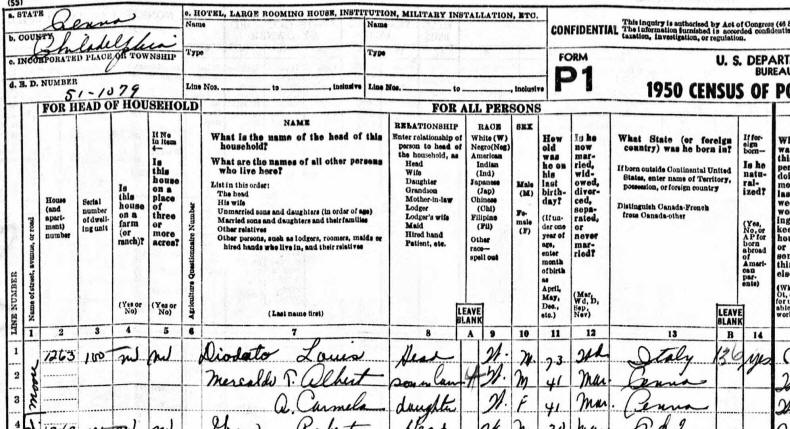 (55)
a. STATE Penna
b. COUNTY Philadelphia
c. INCORPORATED PLACE OR TOWNSHIP
d. E. D. NUMBER 51-1079
e. HOTEL, LARGE ROOMING HOUSE, INSTITUTION, MILITARY INSTALLATION, ETC.
Name Name
Type Type
Line Nos. to , inclusive Line Nos. to , inclusive
CONFIDENTIAL This inquiry is authorized by Act of Congress (46 S
The information furnished is accorded confidentia
taxation, investigation, or regulation.
FORM
P1
U. S. DEPART
BUREAU
1950 CENSUS OF PO
FOR HEAD OF HOUSEHOLD FOR ALL PERSONS
LINE NUMBER
Name of street, avenue, or road
House (and apartment) number
Serial number of dwelling unit
Is this house on a farm (or ranch)?
(Yes or No)
If No in item 4—
Is this house on a place of three or more acres?
(Yes or No)
Agriculture Questionnaire Number
NAME
What is the name of the head of this household?
What are the names of all other persons who live here?
List in this order:
The head
His wife
Unmarried sons and daughters (in order of age)
Married sons and daughters and their families
Other relatives
Other persons, such as lodgers, roomers, maids or
hired hands who live in, and their relatives
(Last name first)
RELATIONSHIP
Enter relationship of person to head of the household, as
Head
Wife
Daughter
Grandson
Mother-in-law
Lodger
Lodger's wife
Maid
Hired hand
Patient, etc.
LEAVE BLANK
RACE
White (W)
Negro(Neg)
American Indian (Ind)
Japanese (Jap)
Chinese (Chi)
Filipino (Fil)
Other race—spell out
SEX
Male (M)
Female (F)
How old was he on his last birthday?
(If under one year of age, enter month of birth as April, May, Dec., etc.)
Is he now married, widowed, divorced, separated, or never married?
(Mar, Wd, D, Sep, Nev)
What State (or foreign country) was he born in?
If born outside Continental United States, enter name of Territory, possession, or foreign country
Distinguish Canada-French from Canada-other
LEAVE BLANK
If foreign born—
Is he naturalized?
(Yes, No, or AP for born abroad of American parents)
1 2 3 4 5 6 7 8 A 9 10 11 12 13 B 14
1 1263 100 no no Diodato Louis Head W. M. 73 Wd Italy 136 yes
2 Mercaldo T. Albert son in law W. M 41 Mar. Penna
3 A. Carmela daughter W. F 41 Mar. Penna
4